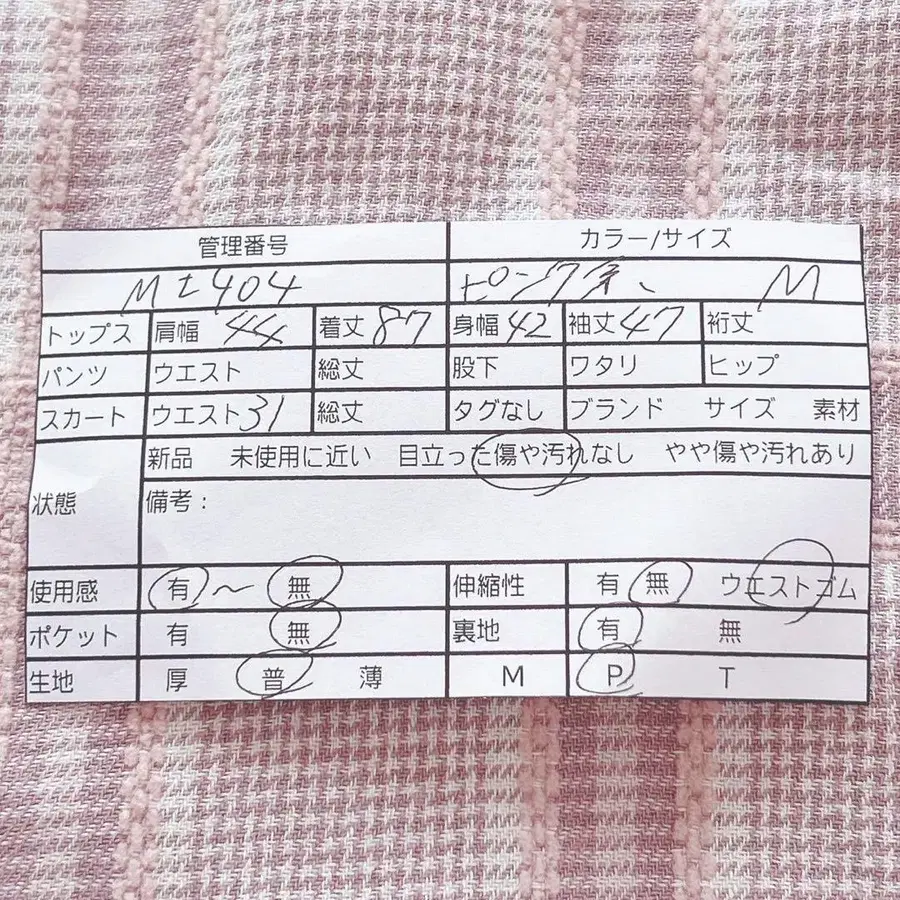 管理番号 カラー/サイズ
Mt404 ピンク系、 M
トップス 肩幅 44 着丈 87 身幅 42 袖丈 47 裄丈
パンツ ウエスト 総丈 股下 ワタリ ヒップ
スカート ウエスト 31 総丈 タグなし ブランド サイズ 素材
新品 未使用に近い 目立った傷や汚れなし やや傷や汚れあり
状態 備考：
使用感 有 〜 無 伸縮性 有 無 ウエストゴム
ポケット 有 無 裏地 有 無
生地 厚 普 薄 M P T